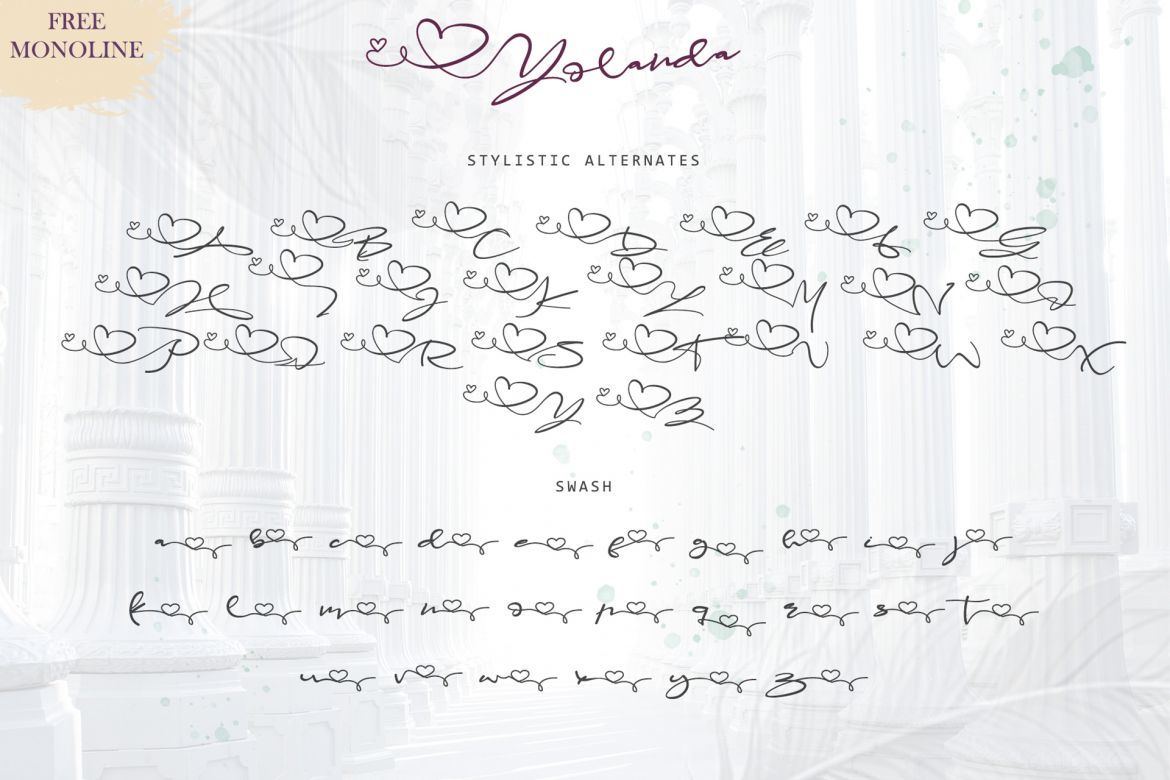 FREE
MONOLINE
Yolanda
STYLISTIC ALTERNATES
A B C D E F G
H I J K L M N O
P Q R S T U V W X
Y Z
SWASH
a b c d e f g h i j
k l m n o p q r s t
u v w x y z